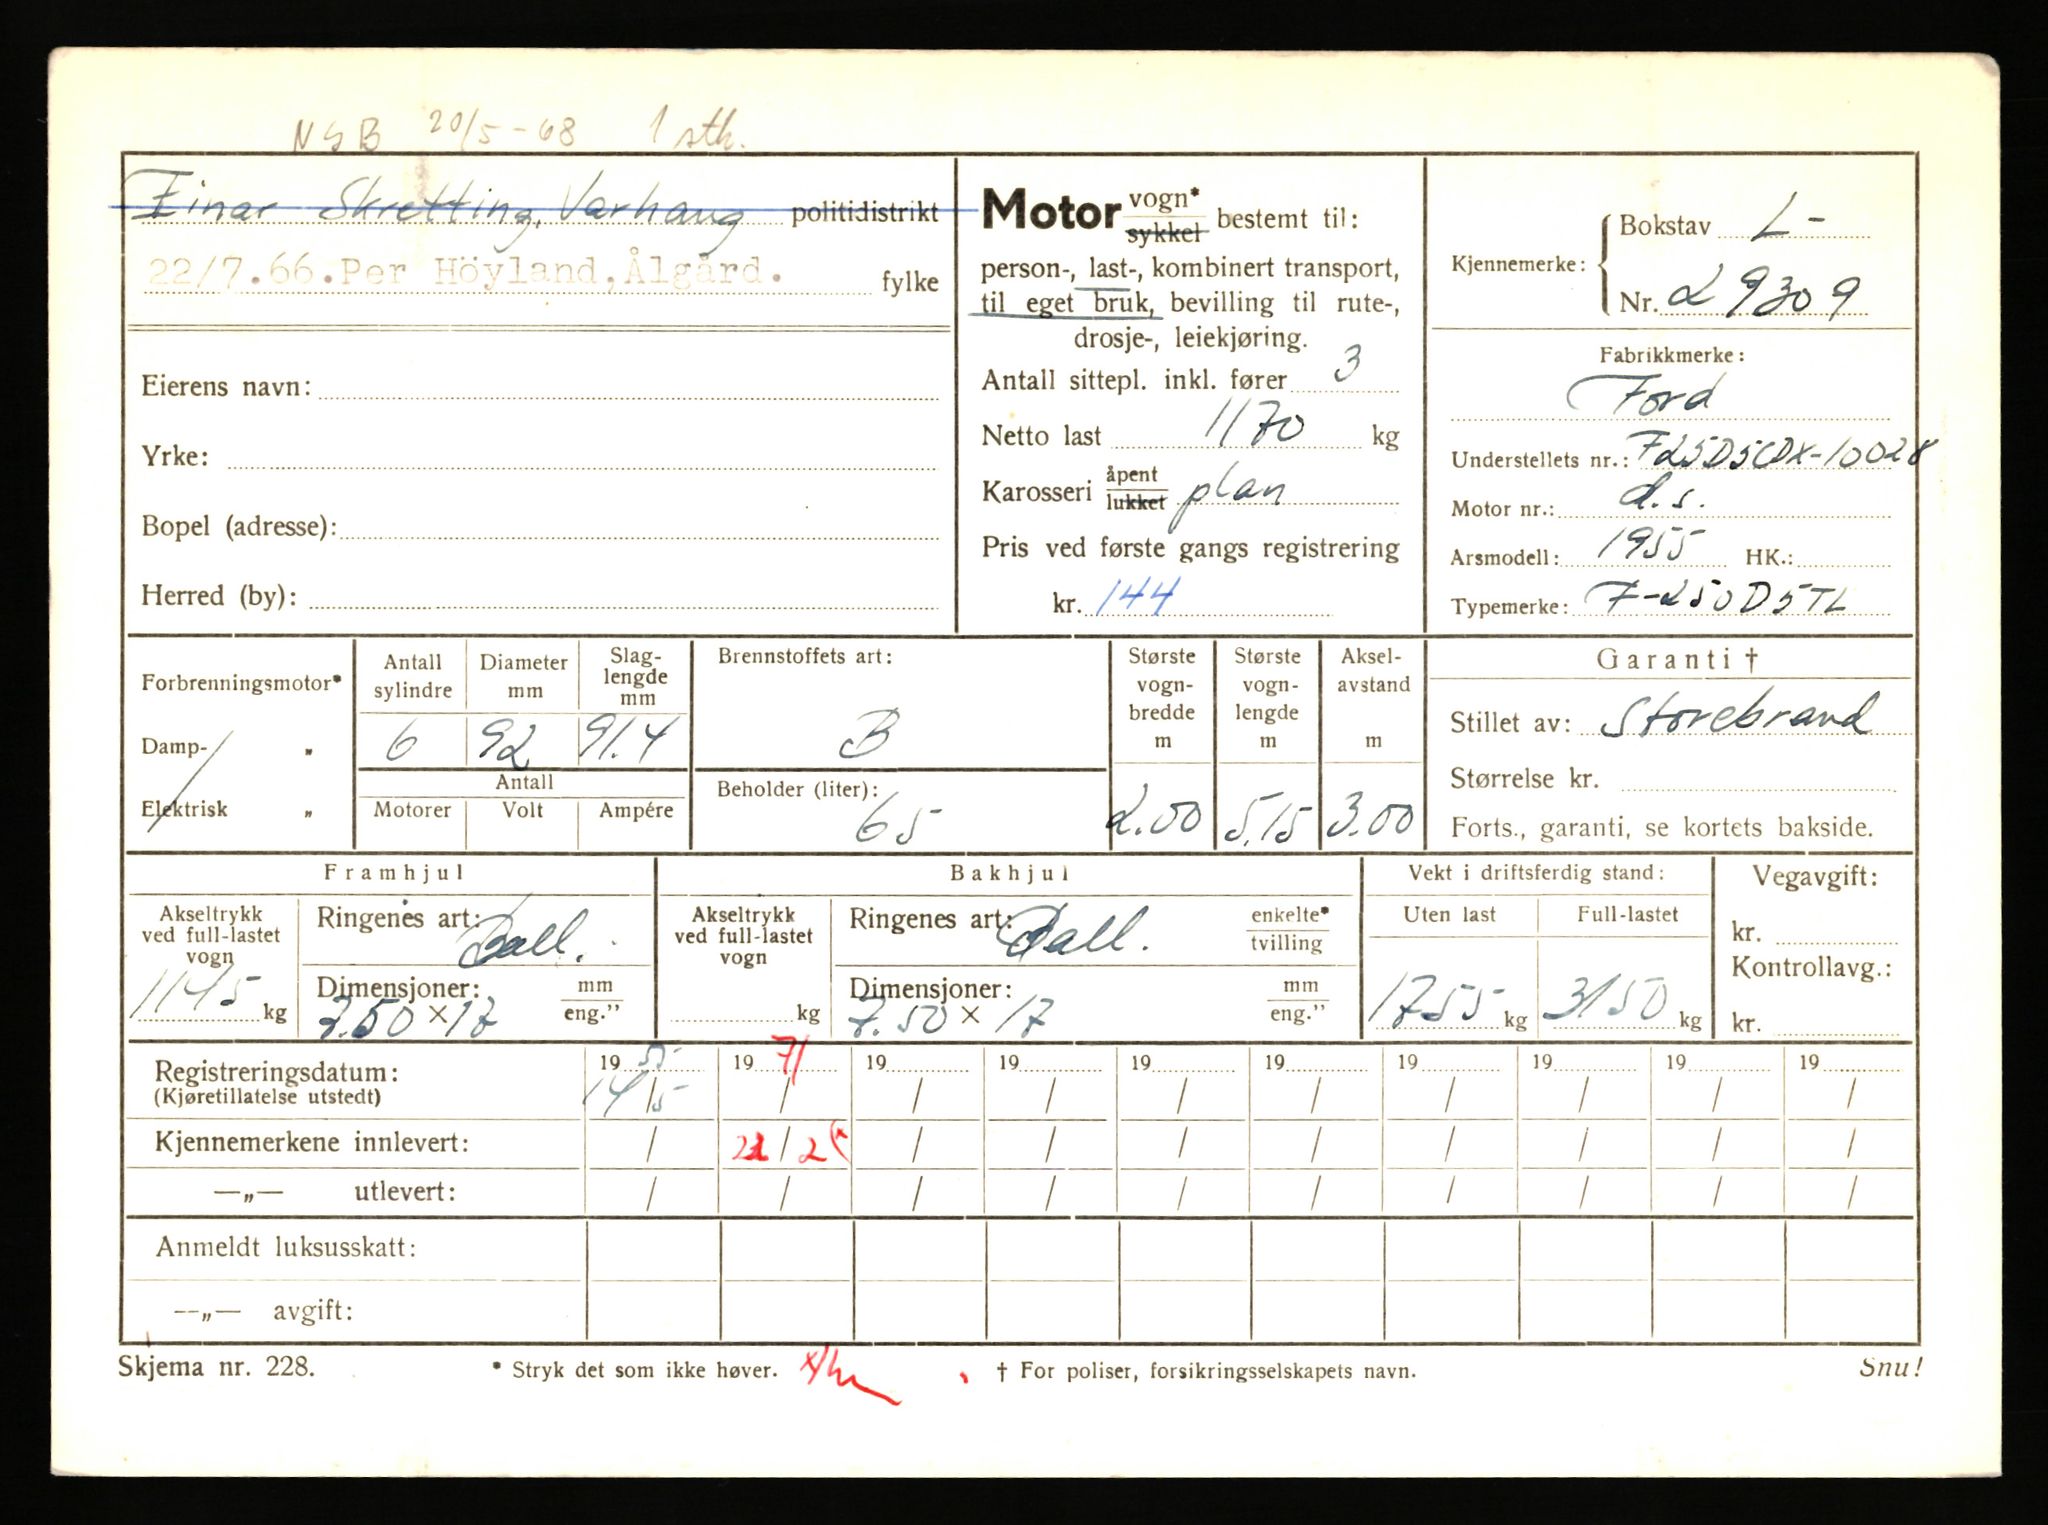 NSB 20/5-68 1 stk.
Einar Skretting, Varhaug politidistrikt
22/7.66.Per Höyland,Ålgård. fylke
Eierens navn:
Yrke:
Bopel (adresse):
Herred (by):
Motor vogn* sykkel bestemt til:
person-, last-, kombinert transport,
til eget bruk, bevilling til rute-,
drosje-, leiekjøring.
Antall sittepl. inkl. fører 3
Netto last 1170 kg
Karosseri åpent lukket plan
Pris ved første gangs registrering
kr. 144
Kjennemerke:
Bokstav L-
Nr. 29309
Fabrikkmerke:
Ford
Understellets nr.: F25D5CDX-10028
Motor nr.: d.s.
Årsmodell: 1955 HK.:
Typemerke: F-250D5TL
Forbrenningsmotor*
Damp- „
Elektrisk „
Antall sylindre
Diameter mm
Slag-lengde mm
6 92 91.4
Antall
Motorer Volt Ampére
Brennstoffets art:
B
Beholder (liter):
65
Største vogn-bredde m
2.00
Største vogn-lengde m
5,15
Aksel-avstand m
3.00
Garanti †
Stillet av: Storebrand
Størrelse kr.
Forts., garanti, se kortets bakside.
Framhjul
Akseltrykk ved full-lastet vogn
1145 kg
Ringenes art: Ball.
Dimensjoner: mm eng."
7.50 x 17
Bakhjul
Akseltrykk ved full-lastet vogn
kg
Ringenes art: Ball. enkelte* tvilling
Dimensjoner: mm eng."
7.50 x 17
Vekt i driftsferdig stand:
Uten last Full-lastet
1755 kg 3150 kg
Vegavgift:
kr.
Kontrollavg.:
kr.
Registreringsdatum: 19 55 19 71 19 19 19 19 19 19 19 19
(Kjøretillatelse utstedt) 14/5 / / / / / / / / /
Kjennemerkene innlevert: / 22/2 (x / / / / / / / /
—„— utlevert: / / / / / / / / / /
Anmeldt luksusskatt:
—„— avgift:
Skjema nr. 228. * Stryk det som ikke høver. † For poliser, forsikringsselskapets navn. Snu!